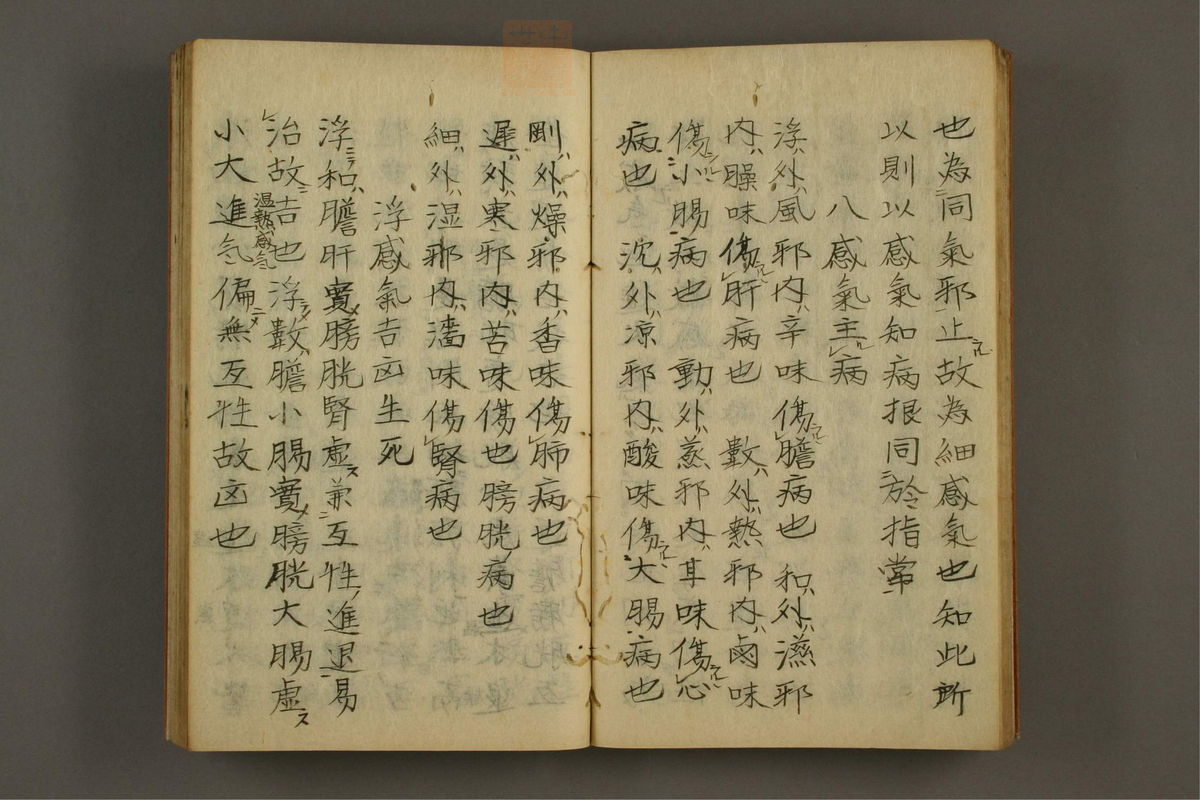 也為同氣邪止故為細感氣也知此所
以則以感氣知病根同於指掌
八感氣主病
浮外風邪内辛味傷膽病也 和外濕邪
内臊味傷肝病也 數外熱邪内鹵味
傷小腸病也 動外蒸邪内耳味傷心
病也 沈外凉邪内酸味傷大腸病也
剛外燥邪内香味傷肺病也
遲外寒邪内苦味傷也膀胱病也
細外湿邪内濇味傷腎病也
浮感氣吉凶生死
浮和膽肝實膀胱腎虛兼互性進退易
治故吉也浮數膽小腸實膀胱大腸虛
温熱感氣
小大進氣偏無互性故凶也